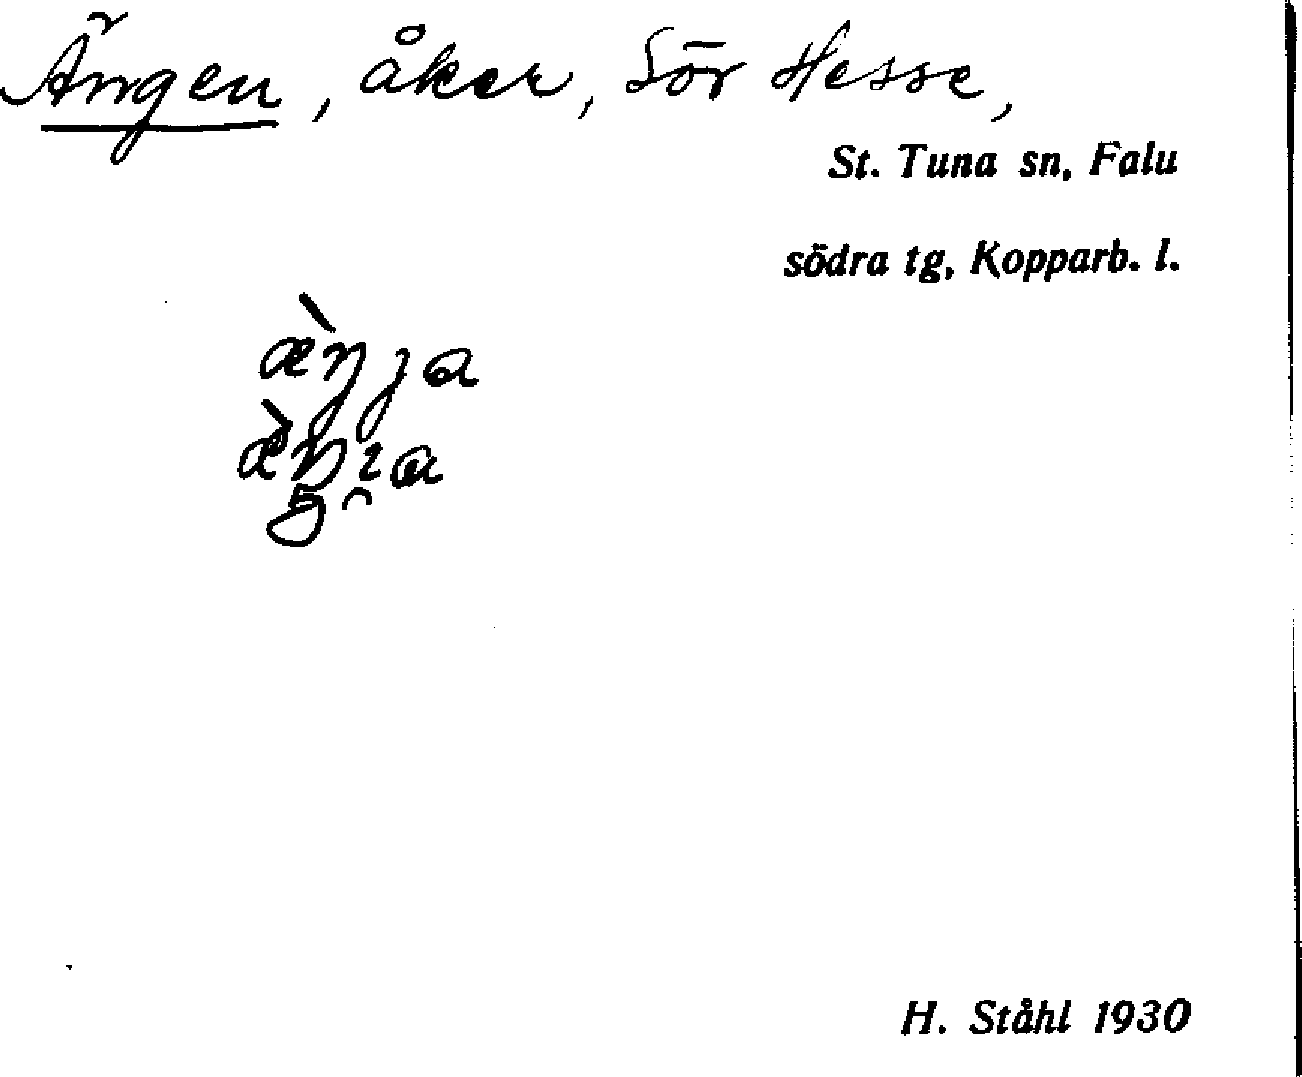 Ängen, åker, Sör Hesse,
St. Tuna sn, Falu
södra tg, Kopparb. l.
æ̀ŋja
H. Ståhl 1930